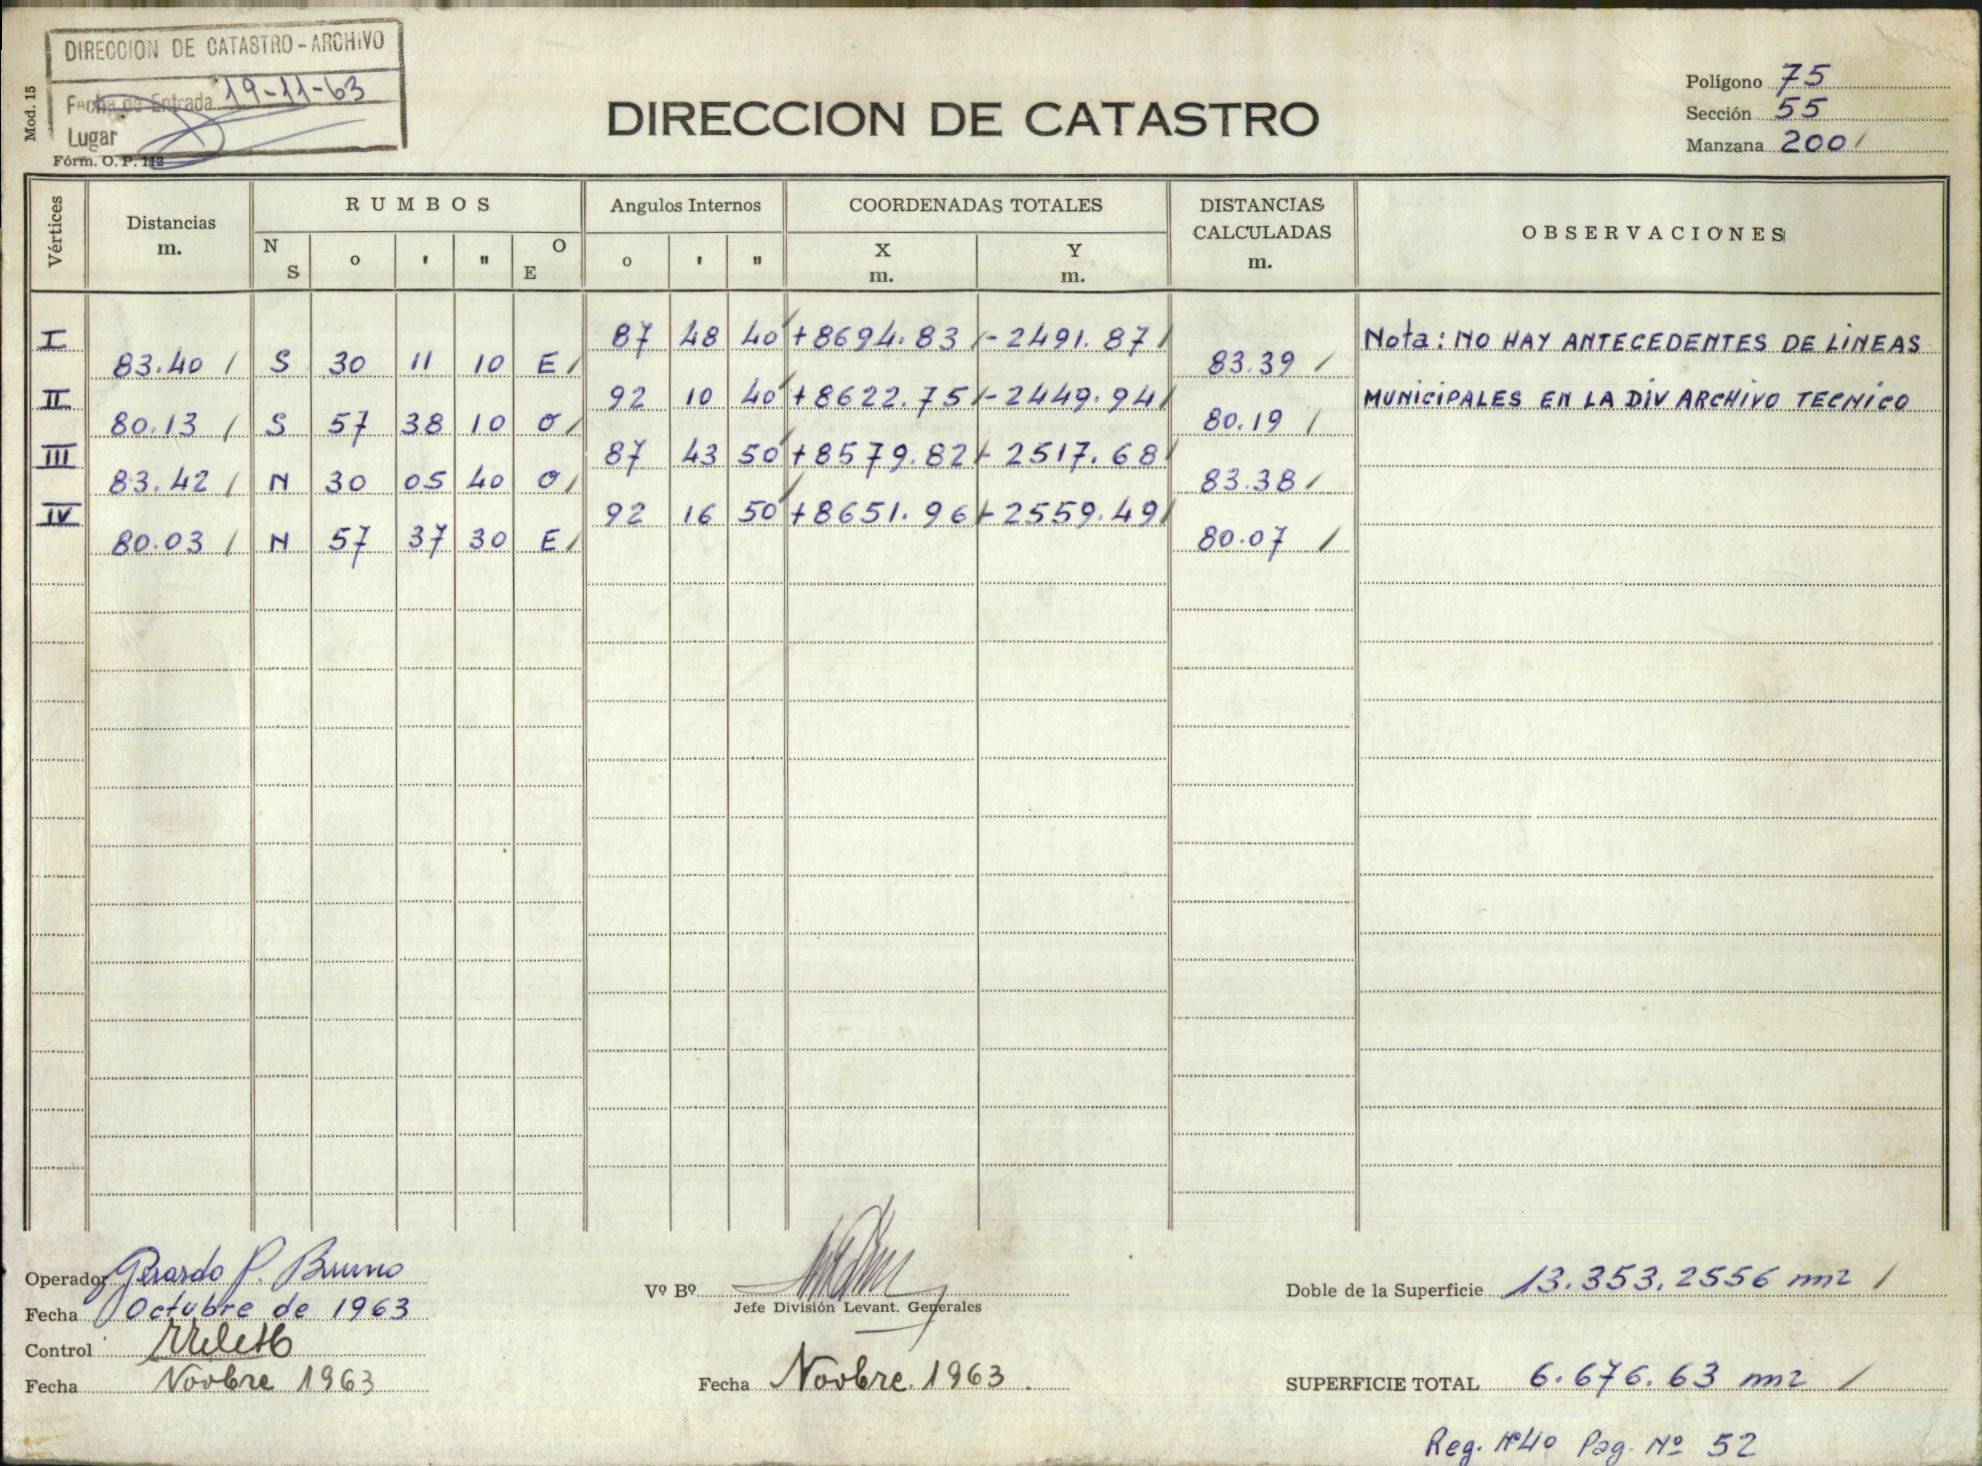 DIRECCION DE CATASTRO - ARCHIVO
Fecha de Entrada 19-11-63
Lugar
Mod. 15
Fórm. O. P. 112
DIRECCION DE CATASTRO
Polígono 75
Sección 55
Manzana 200
Vértices
Distancias
m.
RUMBOS
N S
o ' "
O E
Angulos Internos
o ' "
COORDENADAS TOTALES
X
m.
Y
m.
DISTANCIAS
CALCULADAS
m.
OBSERVACIONES
I 87 48 40 +8694.83 -2491.87 Nota: NO HAY ANTECEDENTES DE LINEAS
83.40 S 30 11 10 E 83.39
II 92 10 40 +8622.75 -2449.94 MUNICIPALES EN LA DIV ARCHIVO TECNICO
80.13 S 57 38 10 O 80.19
III 87 43 50 +8579.82 - 2517.68
83.42 N 30 05 40 O 83.38
IV 92 16 50 +8651.96 - 2559.49
80.03 N 57 37 30 E 80.07
Operador Gerardo P. Bruno
Fecha Octubre de 1963
Control
Fecha Novbre 1963
Vº Bº
Jefe División Levant. Generales
Fecha Novbre. 1963
Doble de la Superficie 13.353,2556 m2
SUPERFICIE TOTAL 6.676.63 m2
Reg. Nº 40 Pag. Nº 52